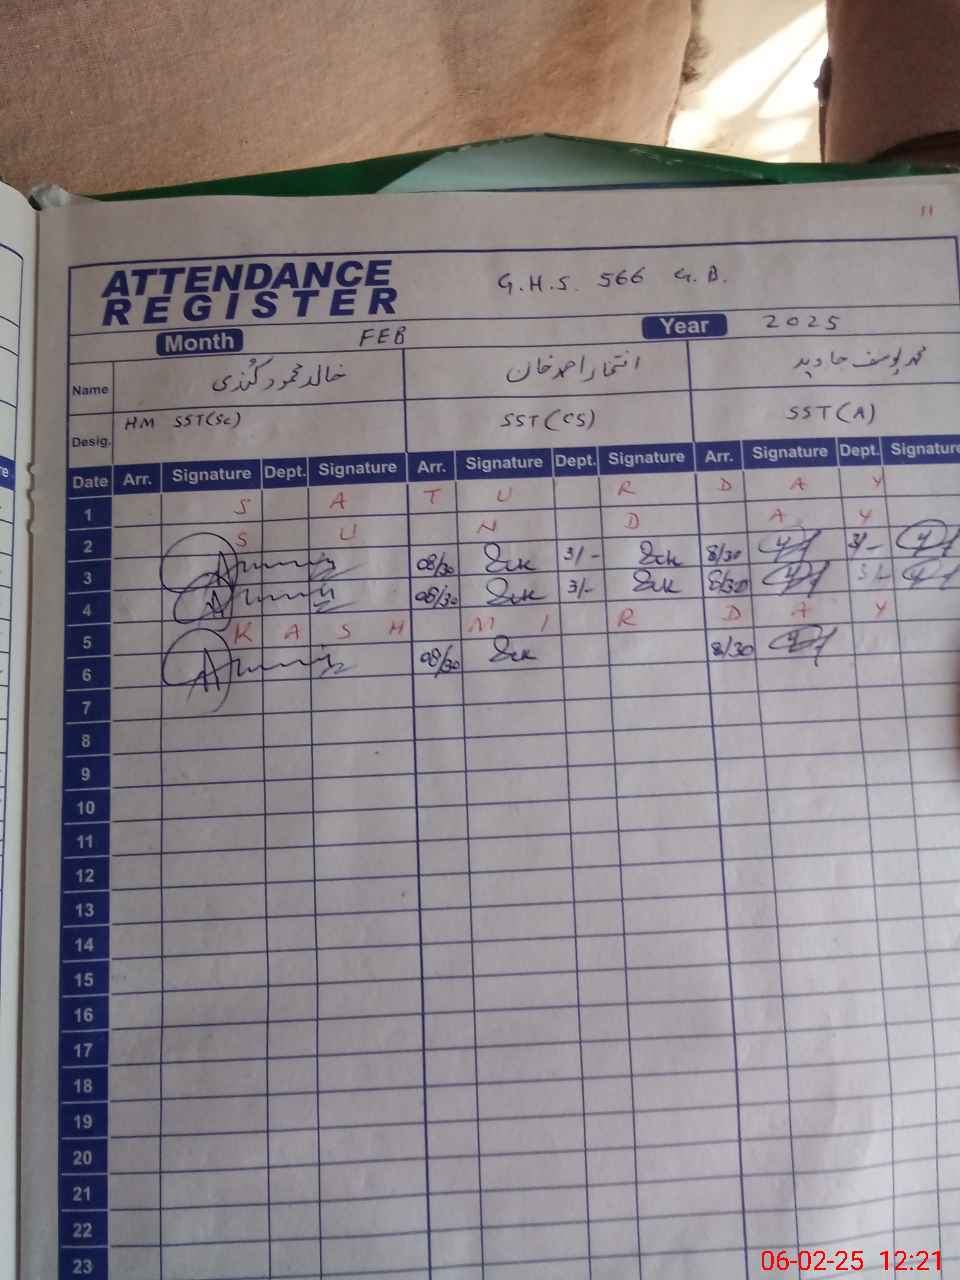 11
ATTENDANCE REGISTER G.H.S. 566 G.B.
Month FEB Year 2025
Name خالد محمود افتخار احمد خان محمد یوسف جاوید
Desig. HM SST(Sc) SST(CS) SST(A)
Date Arr. Signature Dept. Signature Arr. Signature Dept. Signature Arr. Signature Dept. Signature
1 S A T U R D A Y
2 S U N D A Y
3 08/30 3/- 8/30 3/-
4 08/30 3/- 8/30 3/-
5 K A S H M I R D A Y
6 08/30 8/30
7
8
9
10
11
12
13
14
15
16
17
18
19
20
21
22
23
06-02-25 12:21